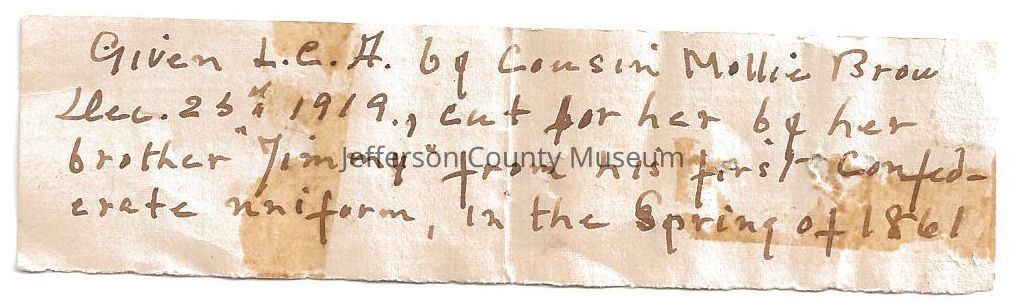 Given L.C.A. by Cousin Mollie Brow
Dec. 25th 1919., cut for her by her
brother "Jimmy" from his first Confed-
erate uniform, in the Spring of 1861
Jefferson County Museum